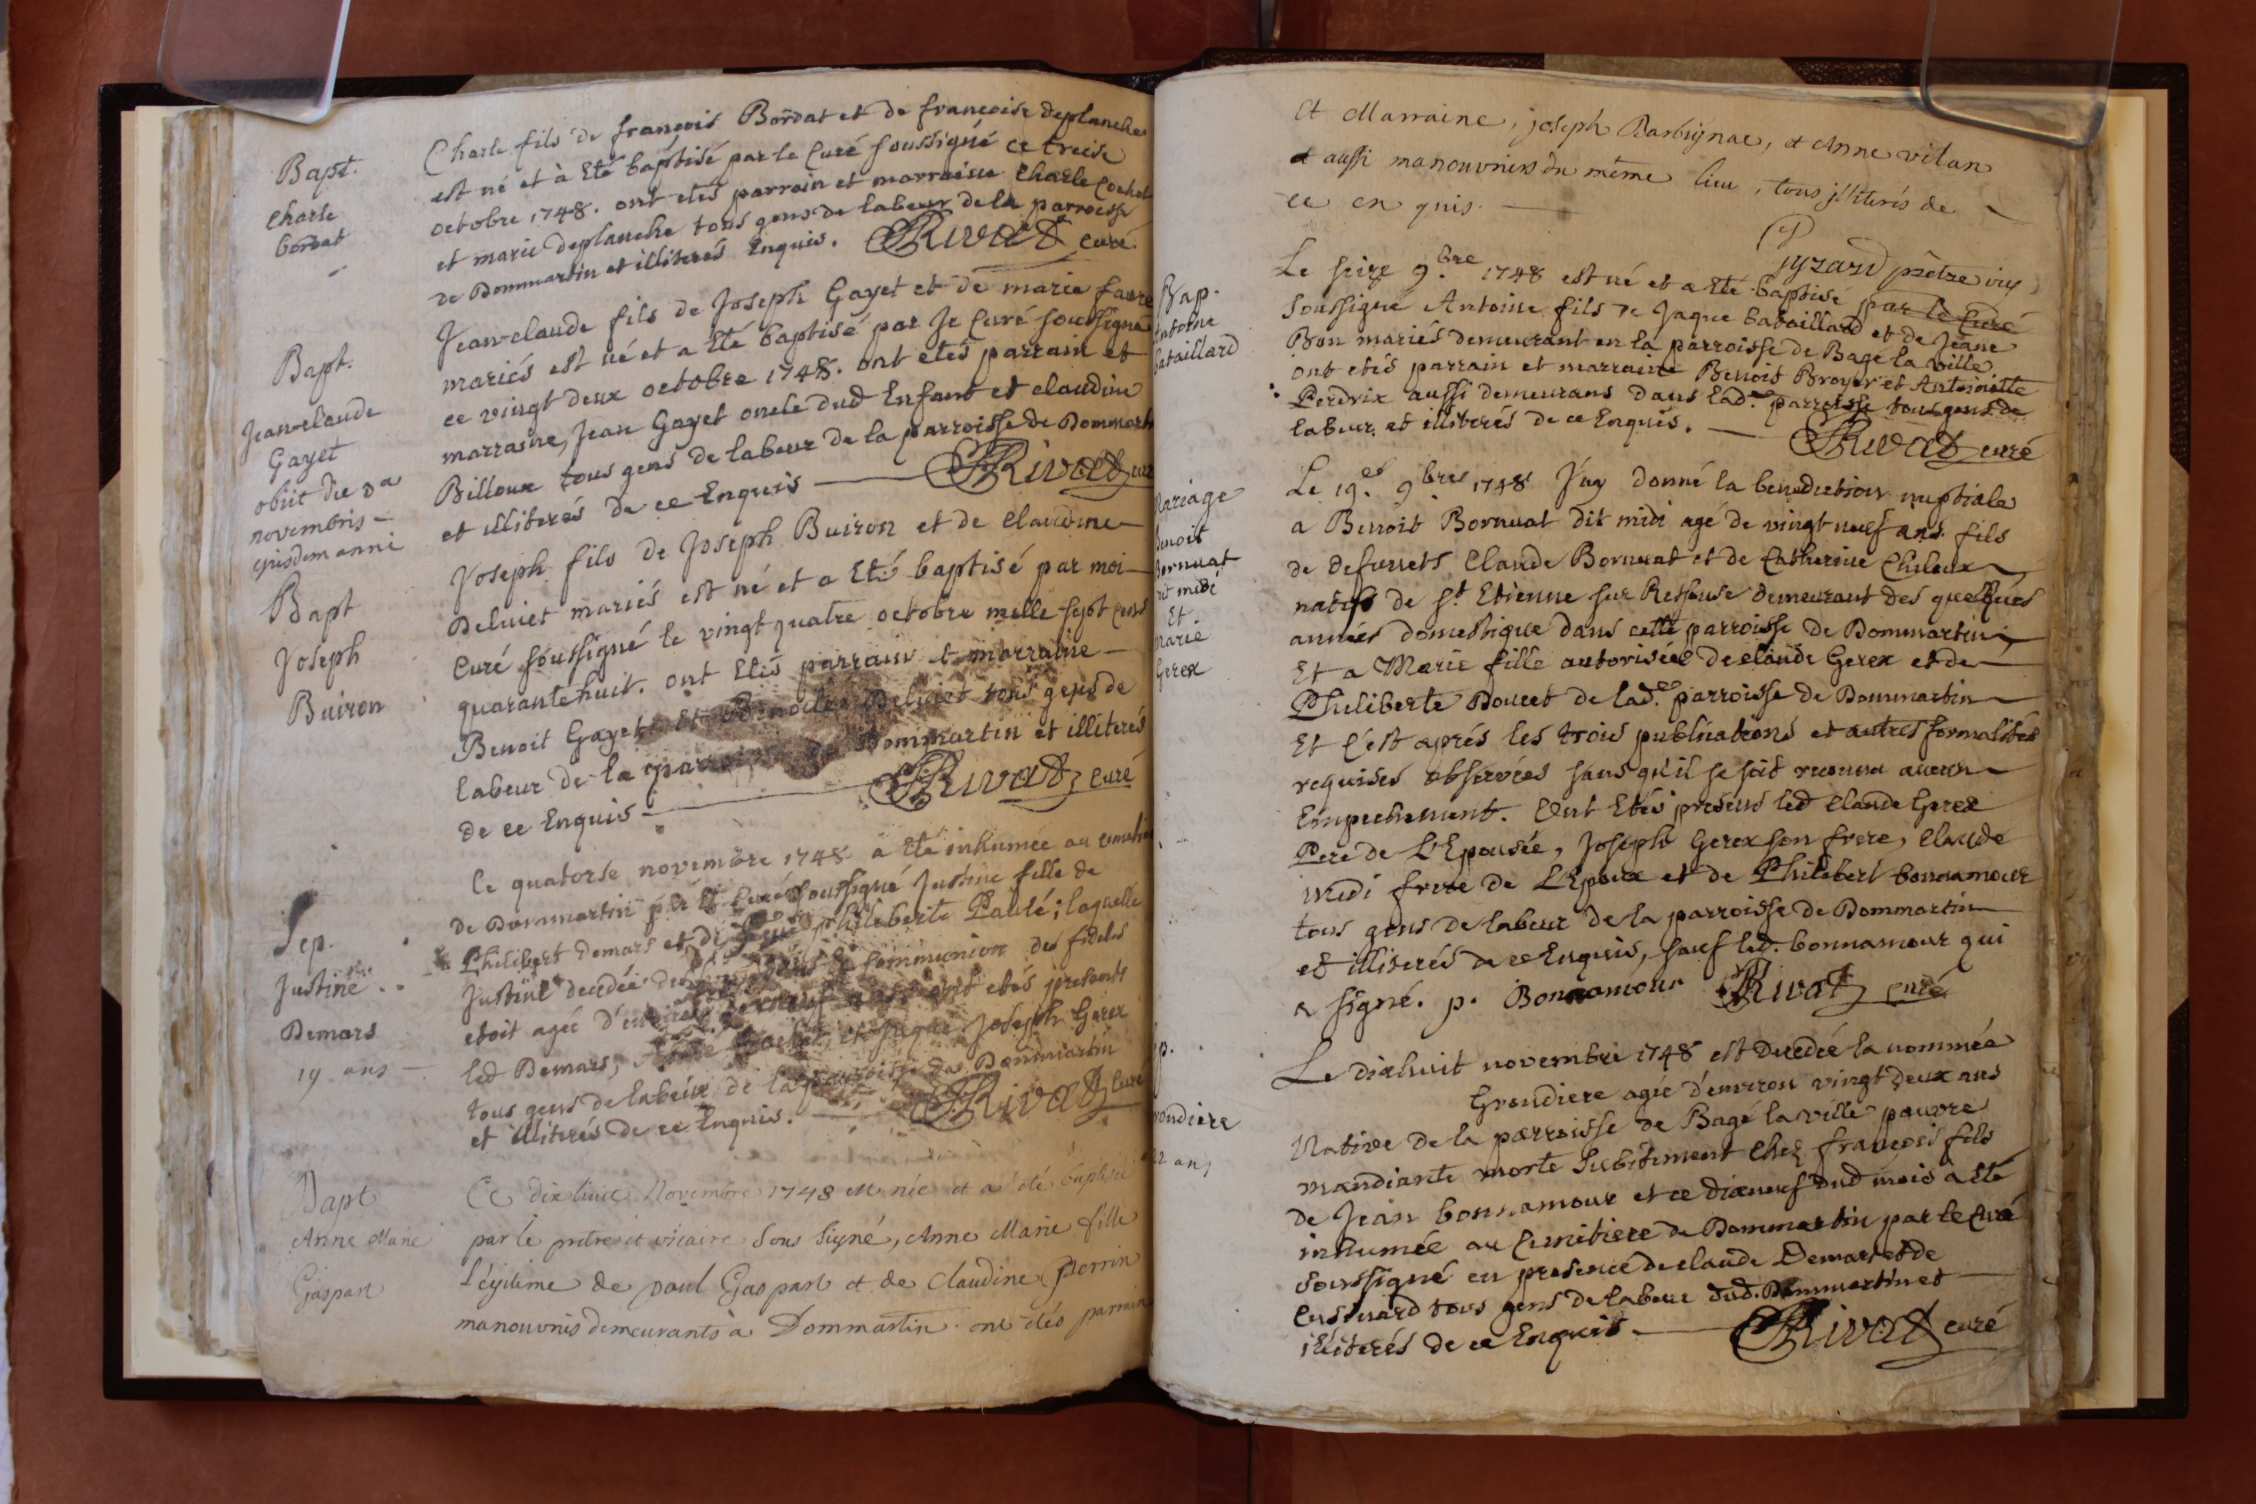 Bapt.
Charle
bordat
Charle fils de françois Bordat et de françoise deplanche
est né et à Eté baptisé par le Curé soussigné ce treise
octobre 1748. ont etés parrain et marraine Charle Cochet
et marie deplanche tous gens de labeur de la parroisse
de Dommartin et illiterés Enquis. Rivat curé
Bapt.
Jeanclaude
Gayet
obiit die 8a
novembris
ejusdem anni
Jeanclaude fils de Joseph Gayet et de marie favre
mariés est né et a Eté baptisé par Je Curé soussigné
ce vingt deux octobre 1748. ont etés parrain et
marraine, Jean Gayet oncle dud Enfant et claudine
Billoux tous gens de labeur de la parroisse de Dommart
et illiterés de ce Enquis Rivat cur
Bapt
Joseph
Buiron
Joseph fils de Joseph Buiron et de Claudine
Deluiet mariés est né et a Eté baptisé par moi
Curé soussigné le vingt quatre octobre melle sept cens
quarantehuit. ont Etés parrain et marraine
Benoit Gayet et Deluiet tous gens de
labeur de la de Dommartin et illiterés
de ce Enquis Rivat curé
Sep.
Justine
Demars
19 ans
Ce quatorse novembre 1748 a Eté inhumée au cimetie
de Dommartin par le Curé soussigné Justine fille de
Philibert Demars et de philiberte Paulé; laquelle
Justine decedée communion des fideles
etoit agée d'environ ont etés presents
led Demars, et Joseph Gerex
tous gens de labeur de la parroisse de Dommartin
et illiterés de ce Enquis. Rivat curé
Bapt
Anne Marie
Gaspart
Ce dix huit Novembre 1748 est née et a été baptisée
par le prêtre et vicaire sous signé, Anne Marie fille
Légitime de paul Gaspart et de Claudine perrin
manouvriés demeurants à Dommartin. ont étés parrain
et Marraine, joseph Barbignac, et Anne vitan
et aussi manouvriers du même lieu, tous illiterés de
ce en quis.
prêtre vic
Bap.
antoine
bataillard
Le seize 9.bre 1748 est né et a Eté baptisé par le Curé
soussigné Antoine fils de Jaque bataillard et de Jeane
Bon mariés demeurant en la parroisse de Bagé la ville
ont etés parrain et marraine Benoit Broyer et Antoinette
Perdrix aussi demeurans dans lad.e parroisse tous gens de
labeur et illiterés de ce Enquis. Rivat curé
Mariage
Benoit
Bornuat
dit midi
Et
Marie
Gerex
Le 19.e 9.bre 1748 J'ay donné la benediction nuptiale
a Benoit Bornuat dit midi agé de vingt neuf ans fils
de defunts Claude Bornuat et de Catherine Chuloux
natif de st Etienne sur Ressouse demeurant des quelques
années domestique dans cette parroisse de Dommartin
Et a Marie fille autorisée de claude Gerex et de
Pheliberte Doucet de lad.e parroisse de Dommartin
Et C'est aprés les trois publications et autres formalités
requises observées sans qu'il se soit reconnu aucun
Empechement. Ont Etés presens led Claude Gerex
Pere de L'Epousée, Joseph Gerex son frere, Claude
midi frere de L'Epoux et de Philibert bonnamour
tous gens de labeur de la parroisse de Dommartin
et illiterés de ce Enquis, sauf led. bonnamour qui
a signé. p. Bonnamour Rivat curé
p.
rondiere
22 ans
Le dixhuit novembre 1748 est decedée la nommée
Grondiere agée d'environ vingt deux ans
Native de la parroisse de Bagé la ville pauvre
mandiante morte subitement chez françois fils
de Jean bonnamour et ce dixneuf dud mois a Eté
inhumée au Cimetiere de Dommartin par le Curé
soussigné en presence de claude Demars et de
Cussinard tous gens de labeur dud. Dommartin et
illiterés de ce Enquis Rivat curé